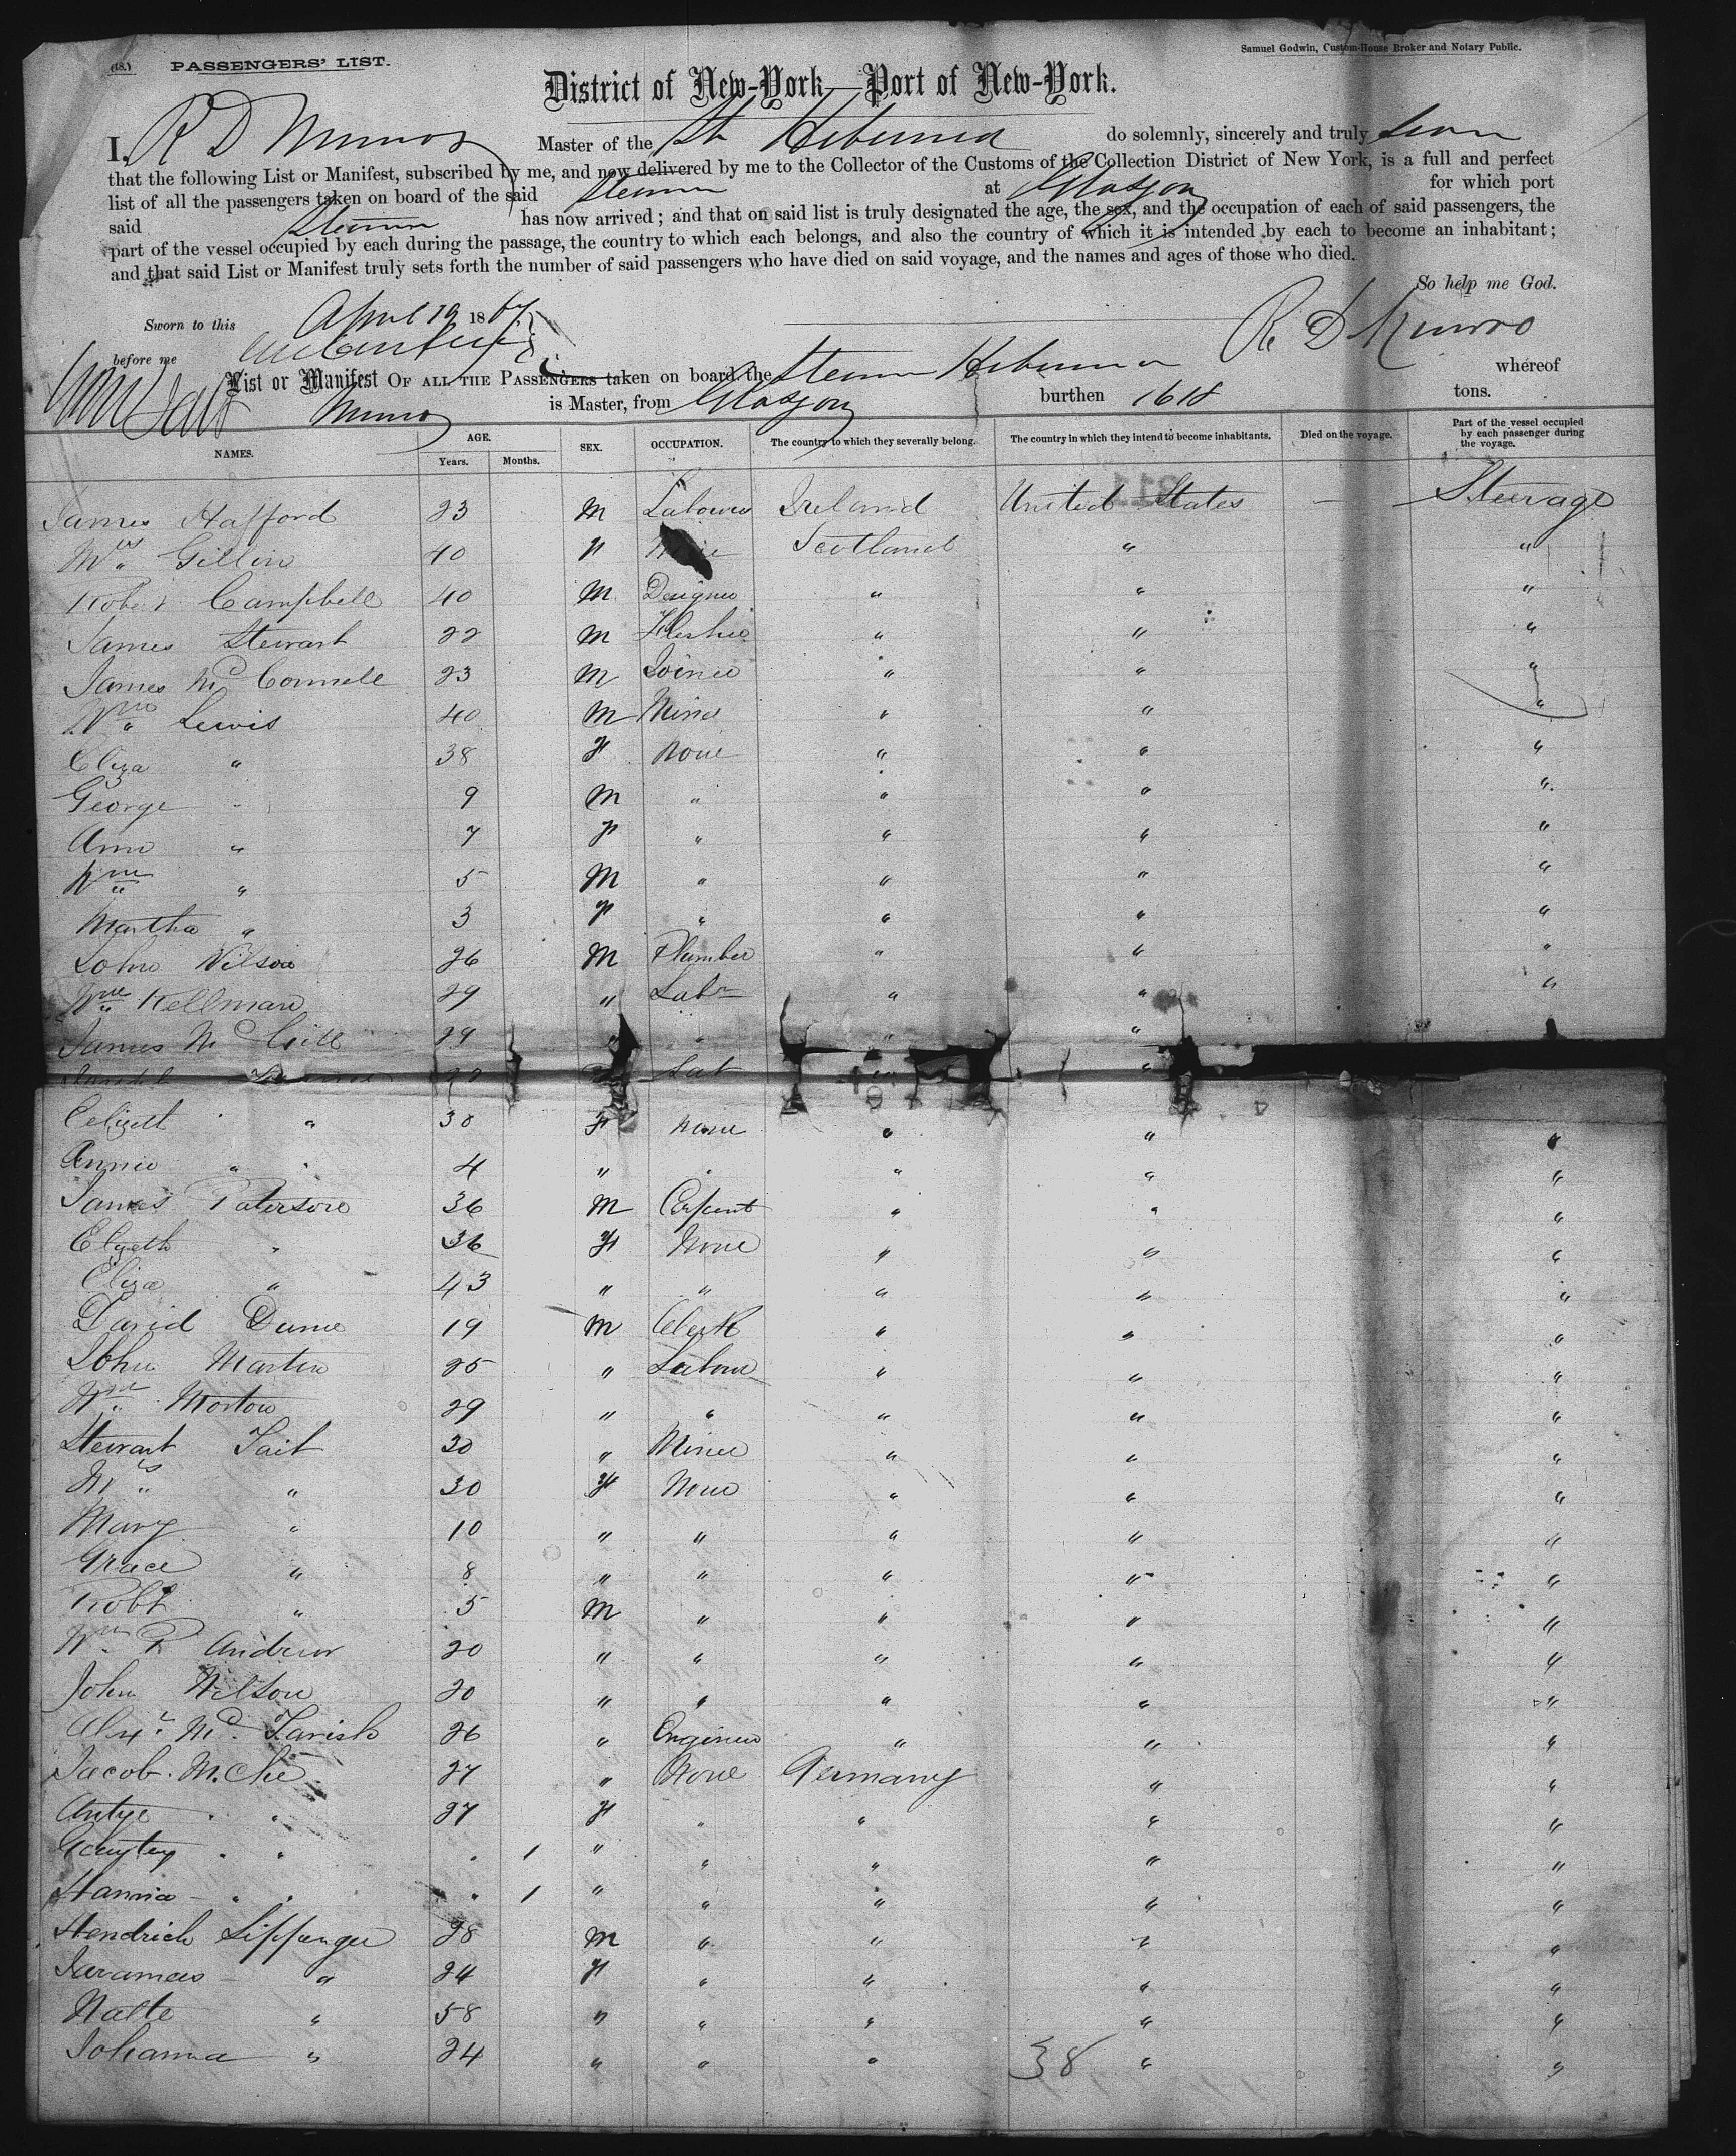 (18.) PASSENGERS' LIST.
Samuel Godwin, Custom-House Broker and Notary Public.
District of New-York—Port of New-York.
I, R D Munro Master of the Str Hibernia do solemnly, sincerely and truly swear
that the following List or Manifest, subscribed by me, and now delivered by me to the Collector of the Customs of the Collection District of New York, is a full and perfect
list of all the passengers taken on board of the said Steamer at Glasgow for which port
said Steamer has now arrived; and that on said list is truly designated the age, the sex, and the occupation of each of said passengers, the
part of the vessel occupied by each during the passage, the country to which each belongs, and also the country of which it is intended by each to become an inhabitant;
and that said List or Manifest truly sets forth the number of said passengers who have died on said voyage, and the names and ages of those who died.
So help me God.
Sworn to this April 19 1867
before me
R D Munro
List or Manifest OF ALL THE PASSENGERS taken on board the Steamer Hibernia whereof
Munro is Master, from Glasgow burthen 1618 tons.
NAMES. AGE. Years. Months. SEX. OCCUPATION. The country to which they severally belong. The country in which they intend to become inhabitants. Died on the voyage. Part of the vessel occupied by each passenger during the voyage.
James Hafford 23 M Labourer Ireland United States — Steerage
Mrs Gillin 40 F Scotland " "
Robert Campbell 40 M Designer " " "
James Stewart 22 M Flesher " " "
James McConnell 23 M Joiner " " "
Wm Lewis 40 M Miner " " "
Eliza " 38 F None " " "
George " 9 M " " " "
Ann " 7 F " " " "
Wm " 5 M " " " "
Martha " 3 F " " " "
John Wilson 26 M Plumber " " "
Wm Kellman 29 " Labr " " "
James McGill 29 " " " "
Lab " "
Elizath " 30 F None " " "
Annie " 4 " " " " "
James Paterson 36 M Carpent " " "
Elzath " 36 F None " " "
Eliza " 43 " " " " "
David Dunn 19 M Clerk " " "
John Martin 25 " Labour " " "
Wm Morton 29 " " " " "
Stewart Tait 30 " Miner " " "
Mrs " 30 F None " " "
Mary " 10 " " " " "
Grace " 8 " " " " "
Robt " 5 M " " " "
Wm R Andrew 20 " " " " "
John Wilson 20 " " " " "
Alexr McTavish 26 " Engineer " " "
Jacob 27 " None Germany " "
Antje " 27 F " " " "
" 1 " " " " "
Hanna " " 1 " " " " "
Hendrich 28 M " " " "
" 24 F " " " "
Nalte " 58 " " " " "
Johanna " 24 " " " " "
38